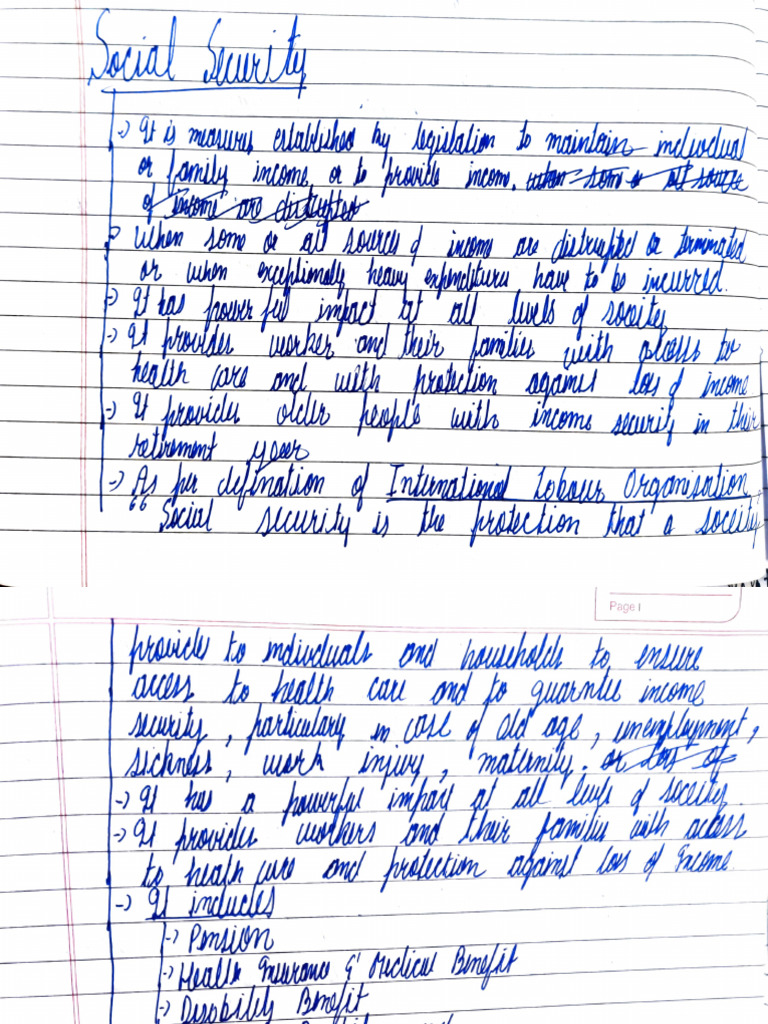 Social Security
-> It is measures established by legislation to maintain individual
or family income or to provide income. when some or all source
of income are distrupted
-> when some or all sources of income are distrupted or terminated
or when exceptionaly heavy expenditures have to be incurred.
-> It has powerful impact at all levels of soceity
-> It provides worker and their families with access to
health care and with protection against loss of income
-> It provides older people with income security in their
retirement year
-> As per defination of International Labour Organisation
"Social security is the protection that a soceity
Page
provides to individuals and households to ensure
access to health care and to guarntee income
security, particulary in case of old age, unemployment,
sickness, work injury, maternity. or loss of
-> It has a powerful impact at all levels of soceity.
-> It provides workers and their families with access
to health care and protection against loss of Income.
-> It includes
-> Pension
-> Health Insurance & Medical Benefit
-> Disability Benefit